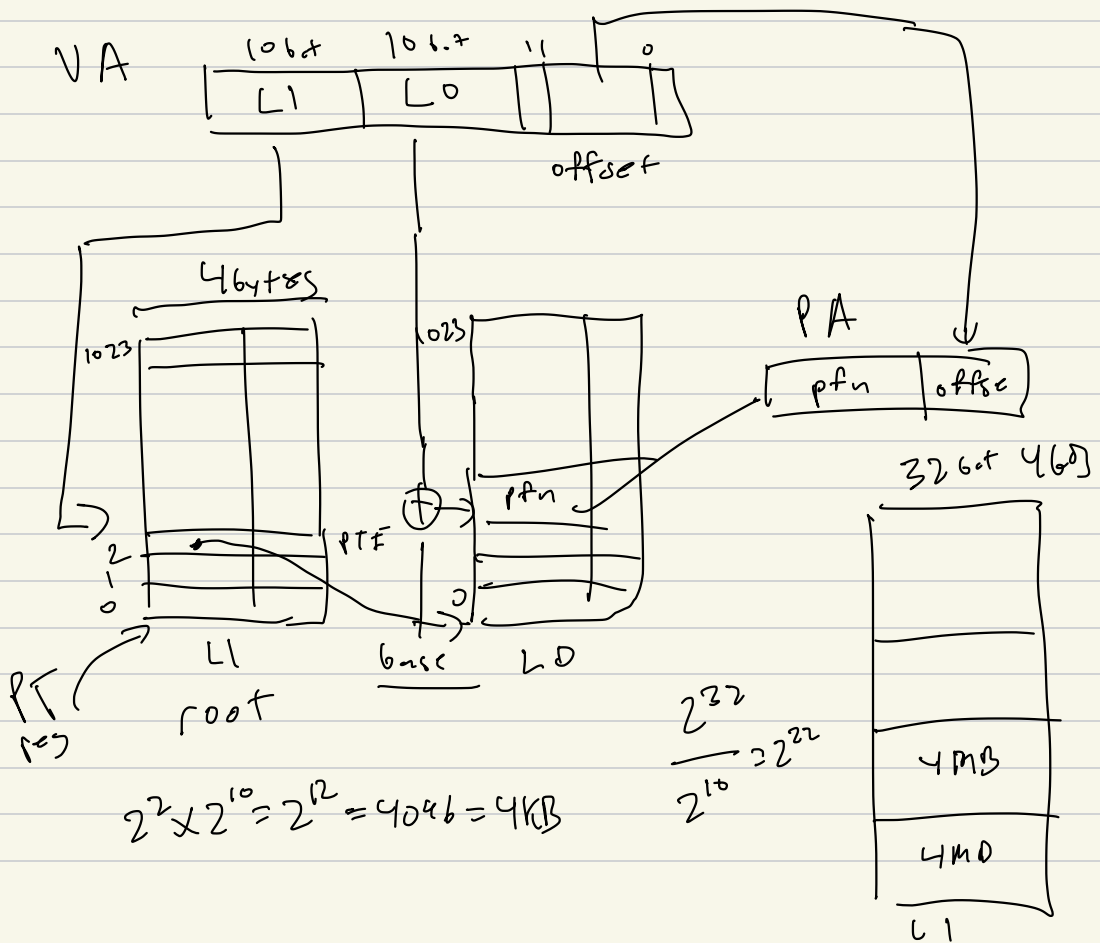 VA
10 bit 10 bit 11 0
L1 L0
offset
4 bytes
1023
1023
PA
pfn offse
32 bit 4GB
pfn
PTE
2
1
0
0
L1
base
L0
PT
reg
root
2^32
/ 2^10 = 2^22
2^2 x 2^10 = 2^12 = 4096 = 4KB
4MB
4MB
L1